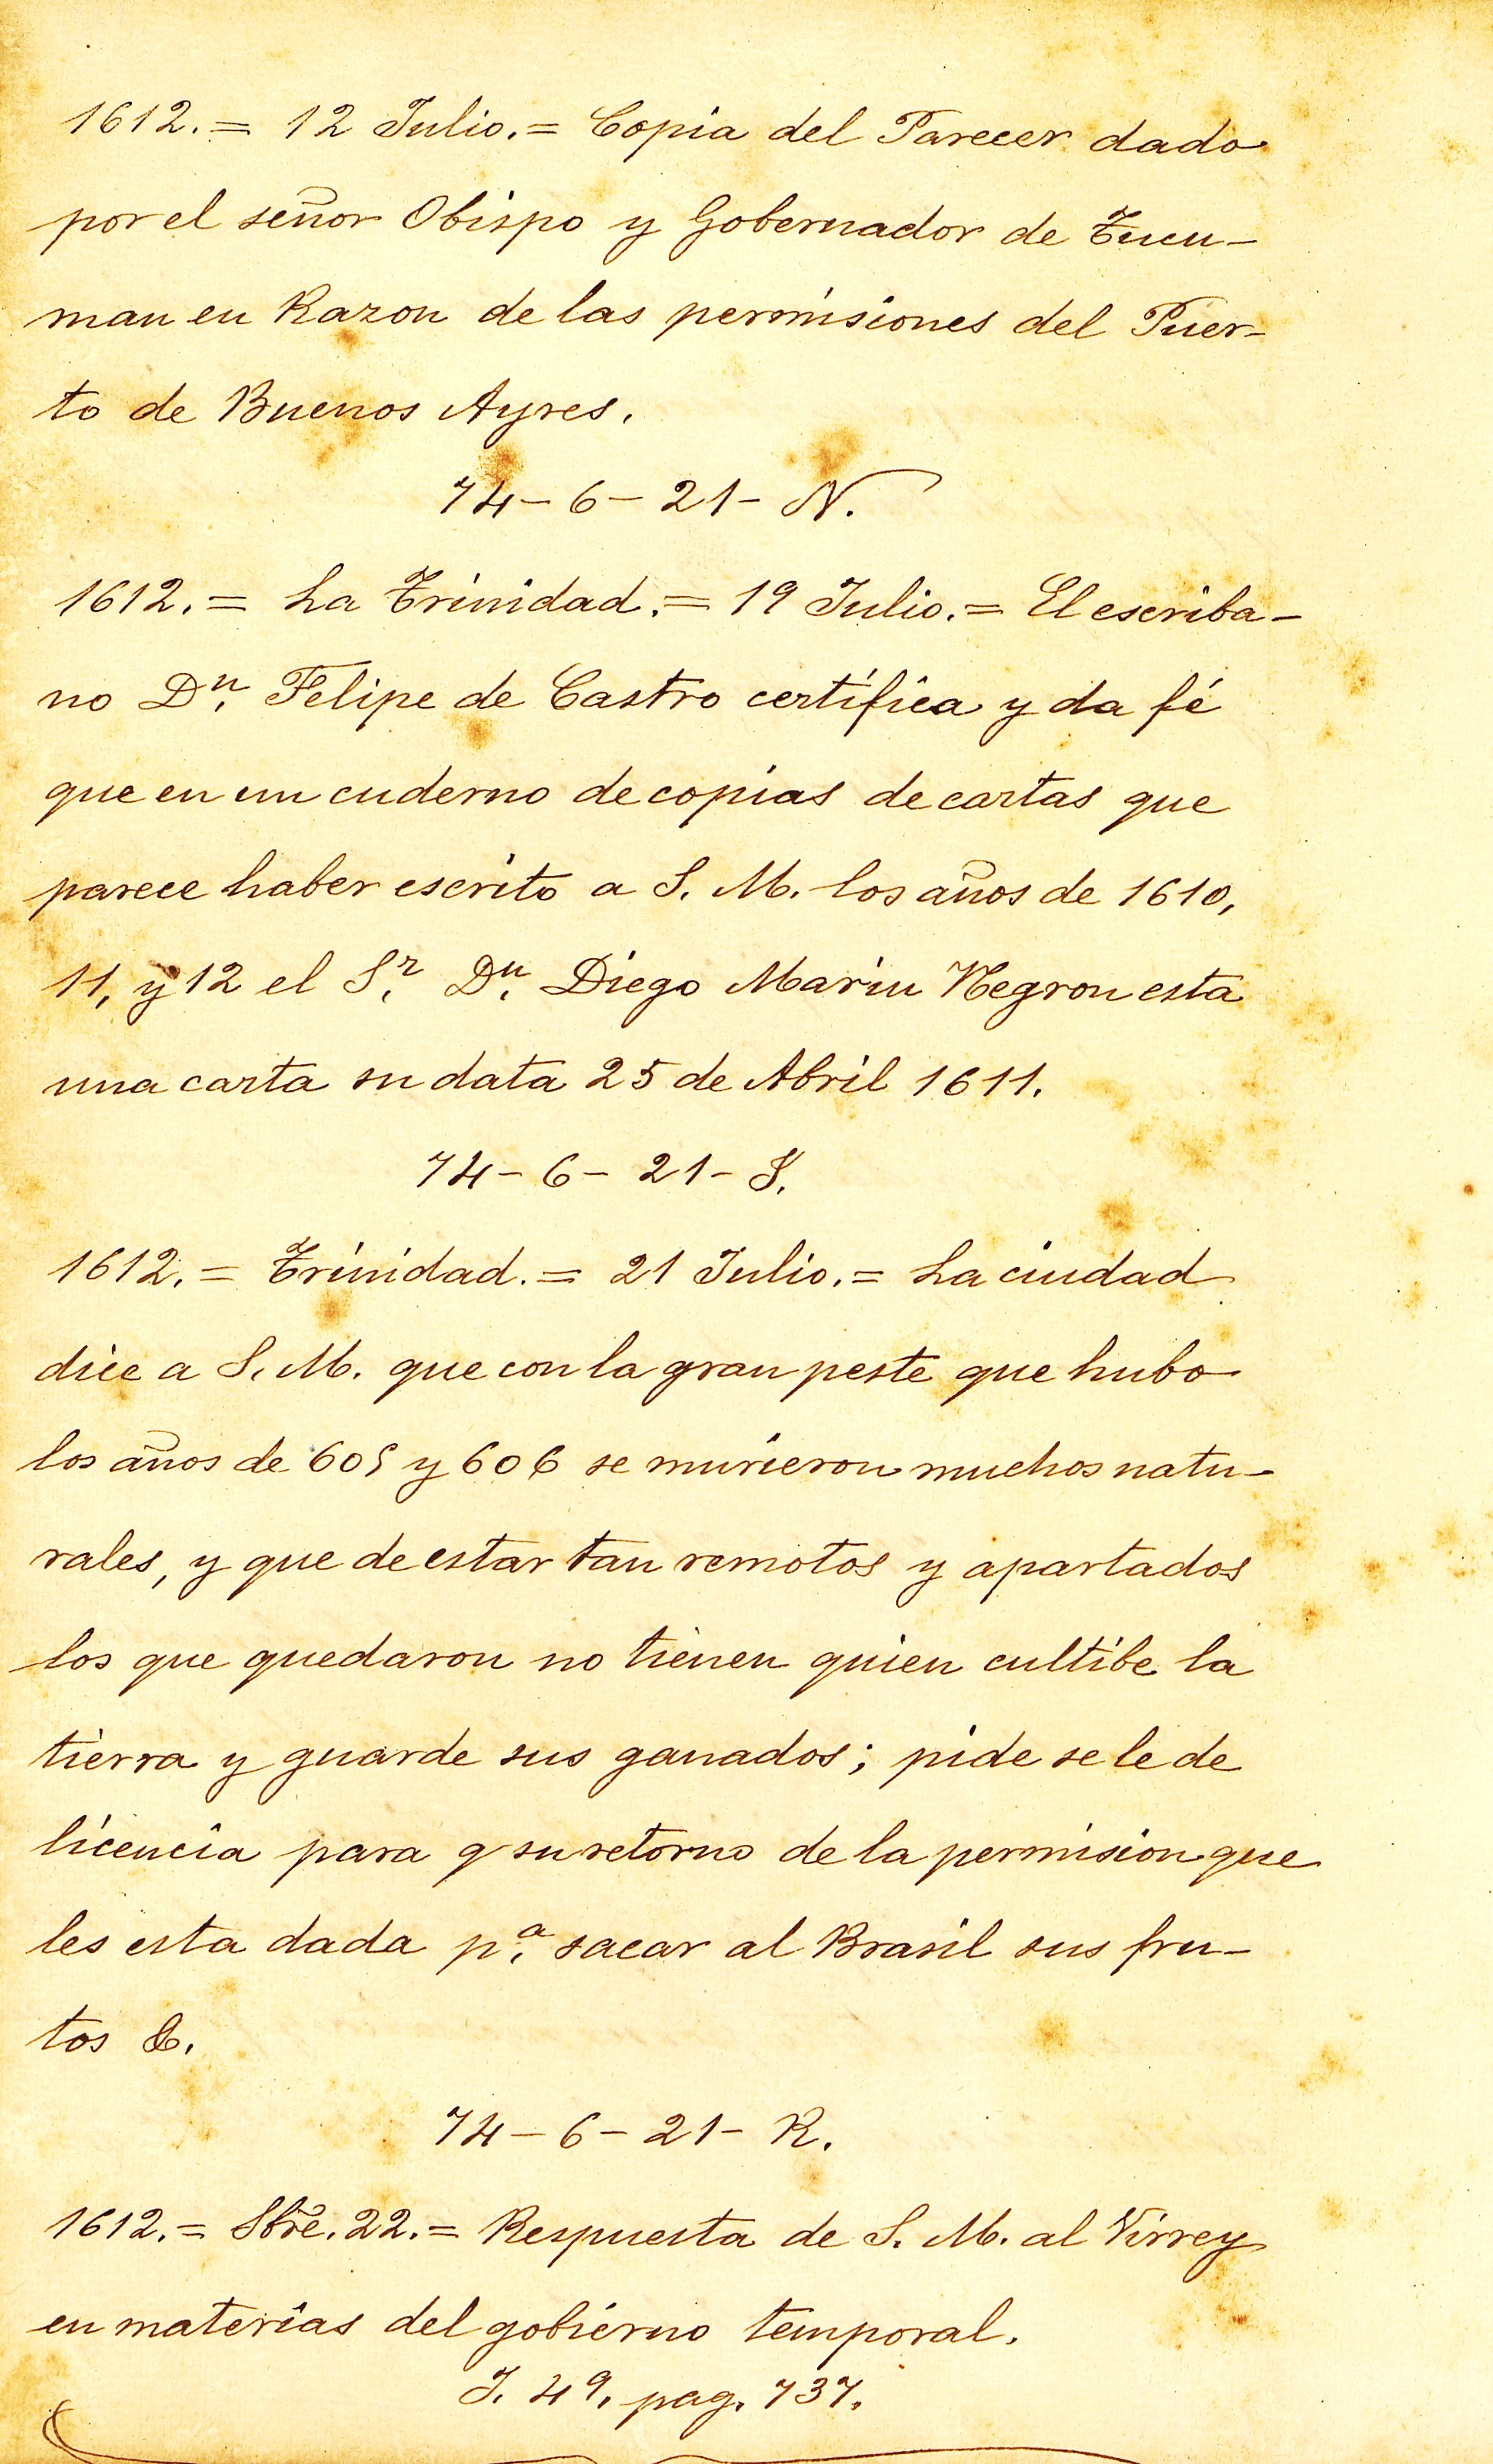 1612. = 12 Julio. = Copia del Parecer dado
por el señor Obispo y Gobernador de Tucu-
man en Razon de las permisiones del Puer-
to de Buenos Ayres.
74-6-21-N.
1612. = La Trinidad. = 19 Julio. = El escriba-
no Dn. Felipe de Castro certifica y da fé
que en un cuderno de copias de cartas que
parece haber escrito a S. M. los años de 1610,
11, y 12 el Sr. Dn. Diego Marin Negron esta
una carta su data 25 de Abril 1611.
74-6-21-J.
1612. = Trinidad. = 21 Julio. = La ciudad
dice a S. M. que con la gran peste que hubo
los años de 605 y 606 se murieron muchos natu-
rales, y que de estar tan remotos y apartados
los que quedaron no tienen quien cultibe la
tierra y guarde sus ganados; pide se le de
licencia para q su retorno de la permision que
les esta dada pa. sacar al Brasil sus fru-
tos &.
74-6-21-R.
1612. = Sbre. 22. = Respuesta de S. M. al Virrey
en materias del gobierno temporal.
J. 49. pag. 737.